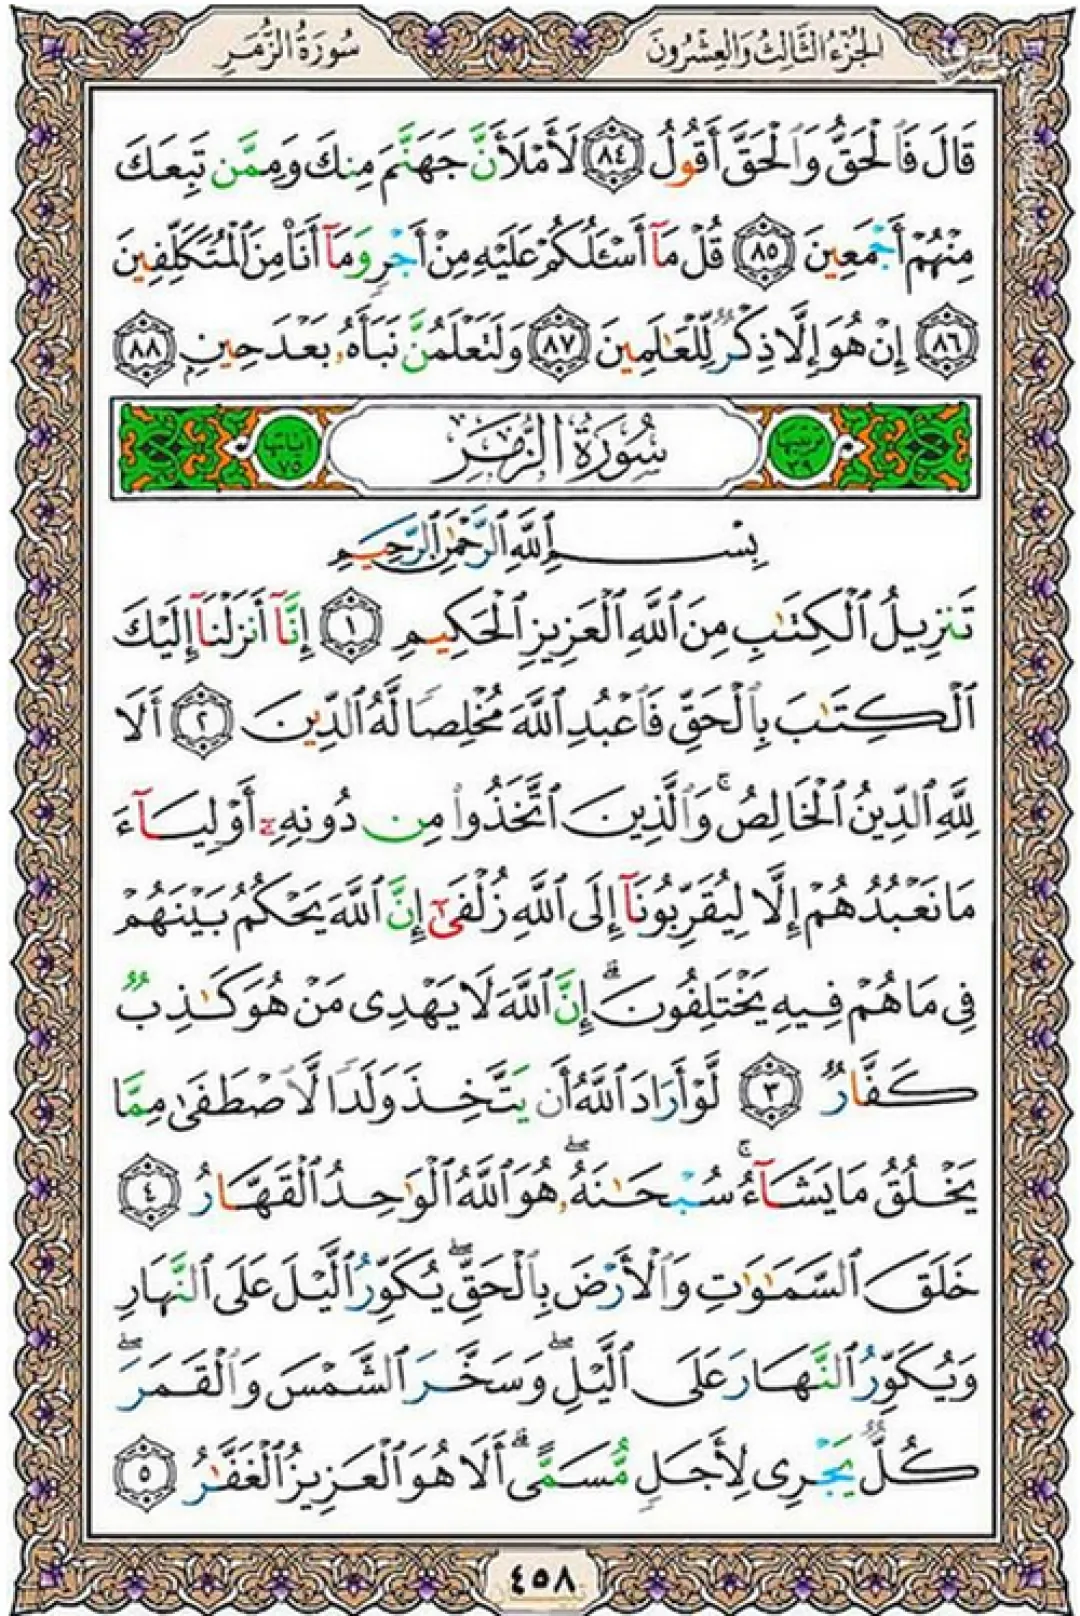 الجُزْءُ الثَّالِثُ وَالعِشْرُونَ
سُورَةُ الزُّمَرِ
قَالَ فَٱلْحَقُّ وَٱلْحَقَّ أَقُولُ ٨٤ لَأَمْلَأَنَّ جَهَنَّمَ مِنكَ وَمِمَّن تَبِعَكَ
مِنْهُمْ أَجْمَعِينَ ٨٥ قُلْ مَآ أَسْـَٔلُكُمْ عَلَيْهِ مِنْ أَجْرٍ وَمَآ أَنَا۠ مِنَ ٱلْمُتَكَلِّفِينَ
٨٦ إِنْ هُوَ إِلَّا ذِكْرٌ لِّلْعَـٰلَمِينَ ٨٧ وَلَتَعْلَمُنَّ نَبَأَهُۥ بَعْدَ حِينٍۭ ٨٨
ترتيبها ٣٩
سُورَةُ الزُّمَرِ
آياتها ٧٥
بِسْمِ ٱللَّهِ ٱلرَّحْمَـٰنِ ٱلرَّحِيمِ
تَنزِيلُ ٱلْكِتَـٰبِ مِنَ ٱللَّهِ ٱلْعَزِيزِ ٱلْحَكِيمِ ١ إِنَّآ أَنزَلْنَآ إِلَيْكَ
ٱلْكِتَـٰبَ بِٱلْحَقِّ فَٱعْبُدِ ٱللَّهَ مُخْلِصًا لَّهُ ٱلدِّينَ ٢ أَلَا
لِلَّهِ ٱلدِّينُ ٱلْخَالِصُ ۚ وَٱلَّذِينَ ٱتَّخَذُوا۟ مِن دُونِهِۦٓ أَوْلِيَآءَ
مَا نَعْبُدُهُمْ إِلَّا لِيُقَرِّبُونَآ إِلَى ٱللَّهِ زُلْفَىٰٓ إِنَّ ٱللَّهَ يَحْكُمُ بَيْنَهُمْ
فِى مَا هُمْ فِيهِ يَخْتَلِفُونَ ۗ إِنَّ ٱللَّهَ لَا يَهْدِى مَنْ هُوَ كَـٰذِبٌ
كَفَّارٌ ٣ لَّوْ أَرَادَ ٱللَّهُ أَن يَتَّخِذَ وَلَدًا لَّٱصْطَفَىٰ مِمَّا
يَخْلُقُ مَا يَشَآءُ ۚ سُبْحَـٰنَهُۥ ۖ هُوَ ٱللَّهُ ٱلْوَٰحِدُ ٱلْقَهَّارُ ٤
خَلَقَ ٱلسَّمَـٰوَٰتِ وَٱلْأَرْضَ بِٱلْحَقِّ ۖ يُكَوِّرُ ٱلَّيْلَ عَلَى ٱلنَّهَارِ
وَيُكَوِّرُ ٱلنَّهَارَ عَلَى ٱلَّيْلِ ۖ وَسَخَّرَ ٱلشَّمْسَ وَٱلْقَمَرَ ۖ
كُلٌّ يَجْرِى لِأَجَلٍ مُّسَمًّى ۗ أَلَا هُوَ ٱلْعَزِيزُ ٱلْغَفَّـٰرُ ٥
٤٥٨